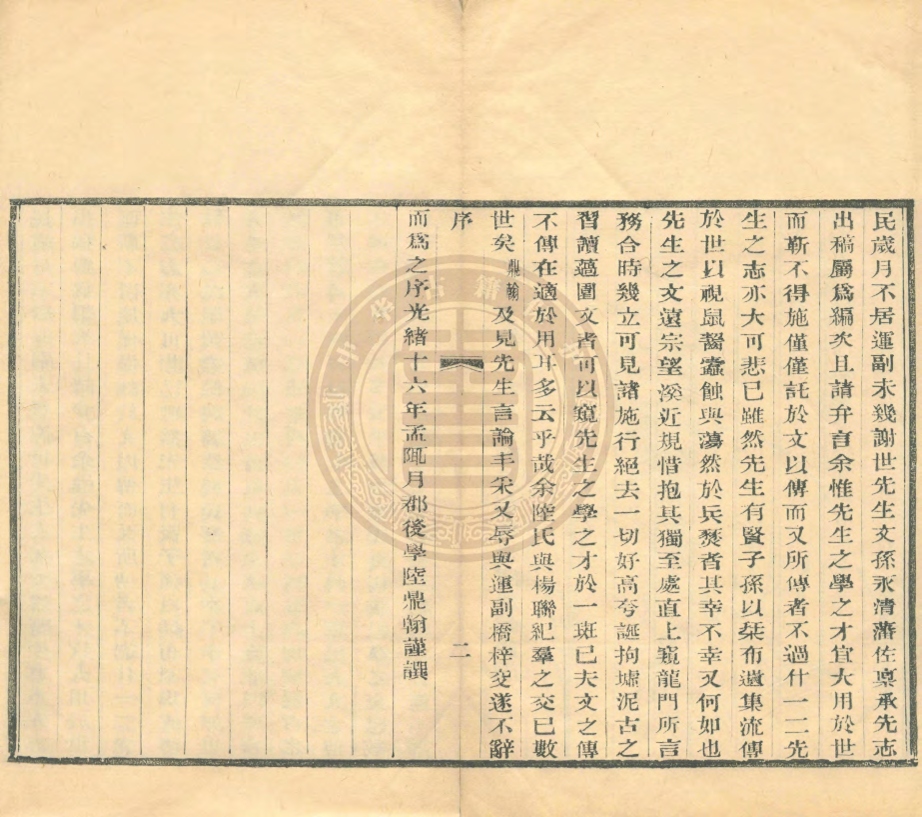 民歲月不居運副未幾謝世先生文孫永清藩佐稟承先志
出稿屬爲編次且請弁言余惟先生之學之才宜大用於世
而靳不得施僅僅託於文以傳而又所傳者不過什一二先
生之志亦大可悲已雖然先生有賢子孫以栞布遺集流傳
於世以視鼠齧蠹蝕與蕩然於兵燹者其幸不幸又何如也
先生之文遠宗望溪近規惜抱其獨至處直上窺龍門所言
務合時幾立可見諸施行絕去一切好高夸誕拘墟泥古之
習讀薖園文者可以窺先生之學之才於一斑已夫文之傳
不傳在適於用耳多云乎哉余陸氏與楊聯紀羣之交已數
世矣鼎翰及見先生言論丰采又辱與運副橋梓交遂不辭
序 二
而爲之序光緒十六年孟陬月郡後學陸鼎翰謹譔